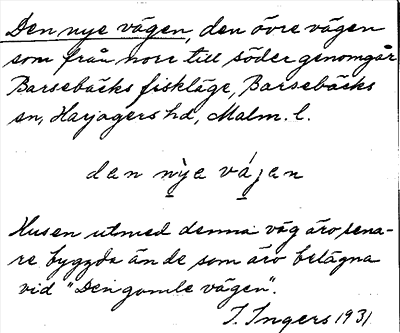 Den nye vägen, den övre vägen
som från norr till söder genomgår
Barsebäcks fiskläge, Barsebäcks
sn, Harjagers hd, Malm. l.
dan nỳa vá̱gan
Husen utmed denna väg äro sena-
re byggda än de som äro belägna
vid "Den gamle vägen".
I. Ingers 1931.